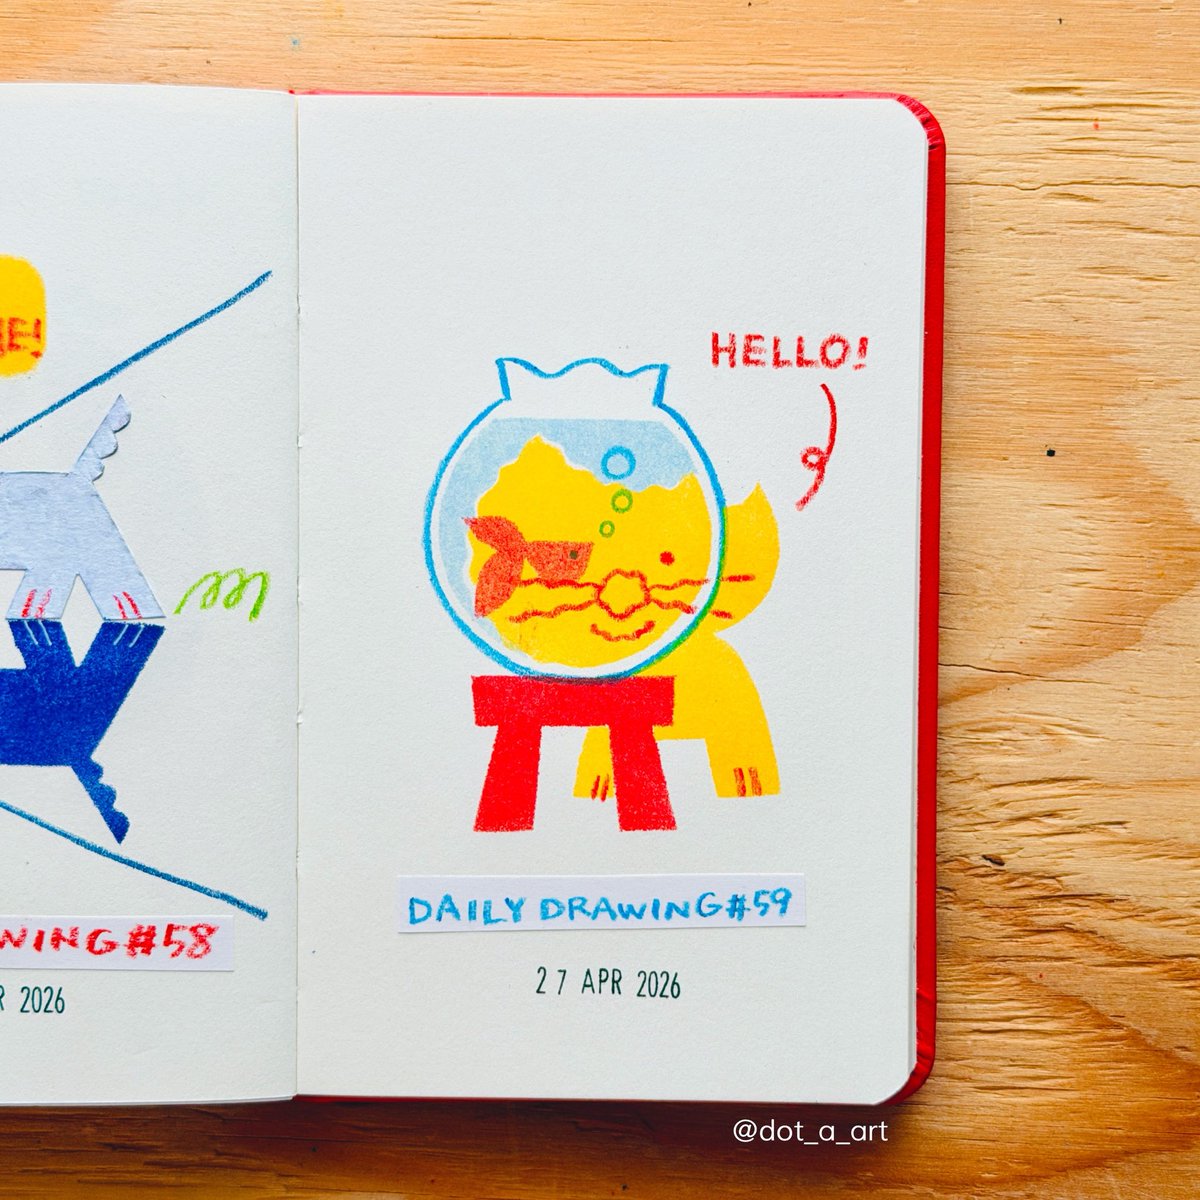 HELLO!
DAILY DRAWING#59
27 APR 2026
WING#58
2026
@dot_a_art